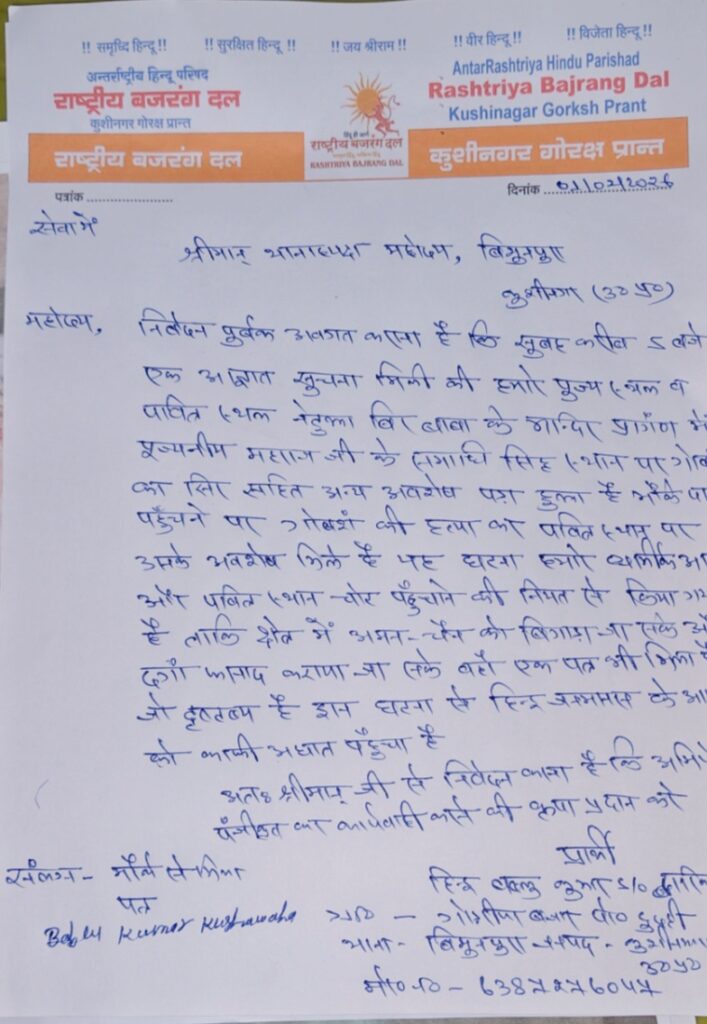 !! समृध्दि हिन्दू !! !! सुरक्षित हिन्दू !! !! जय श्रीराम !! !! वीर हिन्दू !! !! विजेता हिन्दू !!
अन्तर्राष्ट्रीय हिन्दू परिषद
राष्ट्रीय बजरंग दल
कुशीनगर गोरक्ष प्रान्त
AntarRashtriya Hindu Parishad
Rashtriya Bajrang Dal
Kushinagar Gorksh Prant
राष्ट्रीय बजरंग दल
राष्ट्रीय बजरंग दल
RASHTRIYA BAJRANG DAL
कुशीनगर गोरक्ष प्रान्त
पत्रांक ........................
दिनांक 01/02/2026
सेवा में
श्रीमान् थानाध्यक्ष महोदय, बिशुनपुरा
कुशीनगर (उ० प्र०)
महोदय, निवेदन पूर्वक अवगत कराना है कि सुबह करीब 5 बजे
एक अज्ञात सूचना मिली की हमारे पूज्य स्थल व
पवित्र स्थल बिर बाबा के मान्दिर प्रागंण में
पूज्यनीय महाराज जी के समाधि स्थान पर
का सिर सहित अन्य अवशेष पड़ा हुआ है मौके पर
पहुँचने पर गोवशं की हत्या कर पवित्र स्थान पर
उसके अवशेष मिले है यह घटना हमारे धार्मिक
और पवित्र स्थान चोट पहुँचाने की नियत से किया
है ताकि क्षेत्र में अमन-चैन को बिगाड़ा जा सके
दगां फसाद कराया जा सके वहाँ एक पत्र भी मिला है
जो है इस घटना से हिन्दू जनमानस के
को काफी अघात पहुँचा है
अतः श्रीमान् जी से निवेदन करना है कि
पंजीकृत कर कार्यवाही करने की कृपा प्रदान करे
प्रार्थी
संलग्न - मौके से मिला
पत्र
हिन्दू कुमार S/O
Bablu Kumar Kushawaha
ग्राम - बजार पो० दुदही
थाना - बिशुनपुरा जनपद - कुशीनगर
उ० प्र०
मो० न० - 6387276047